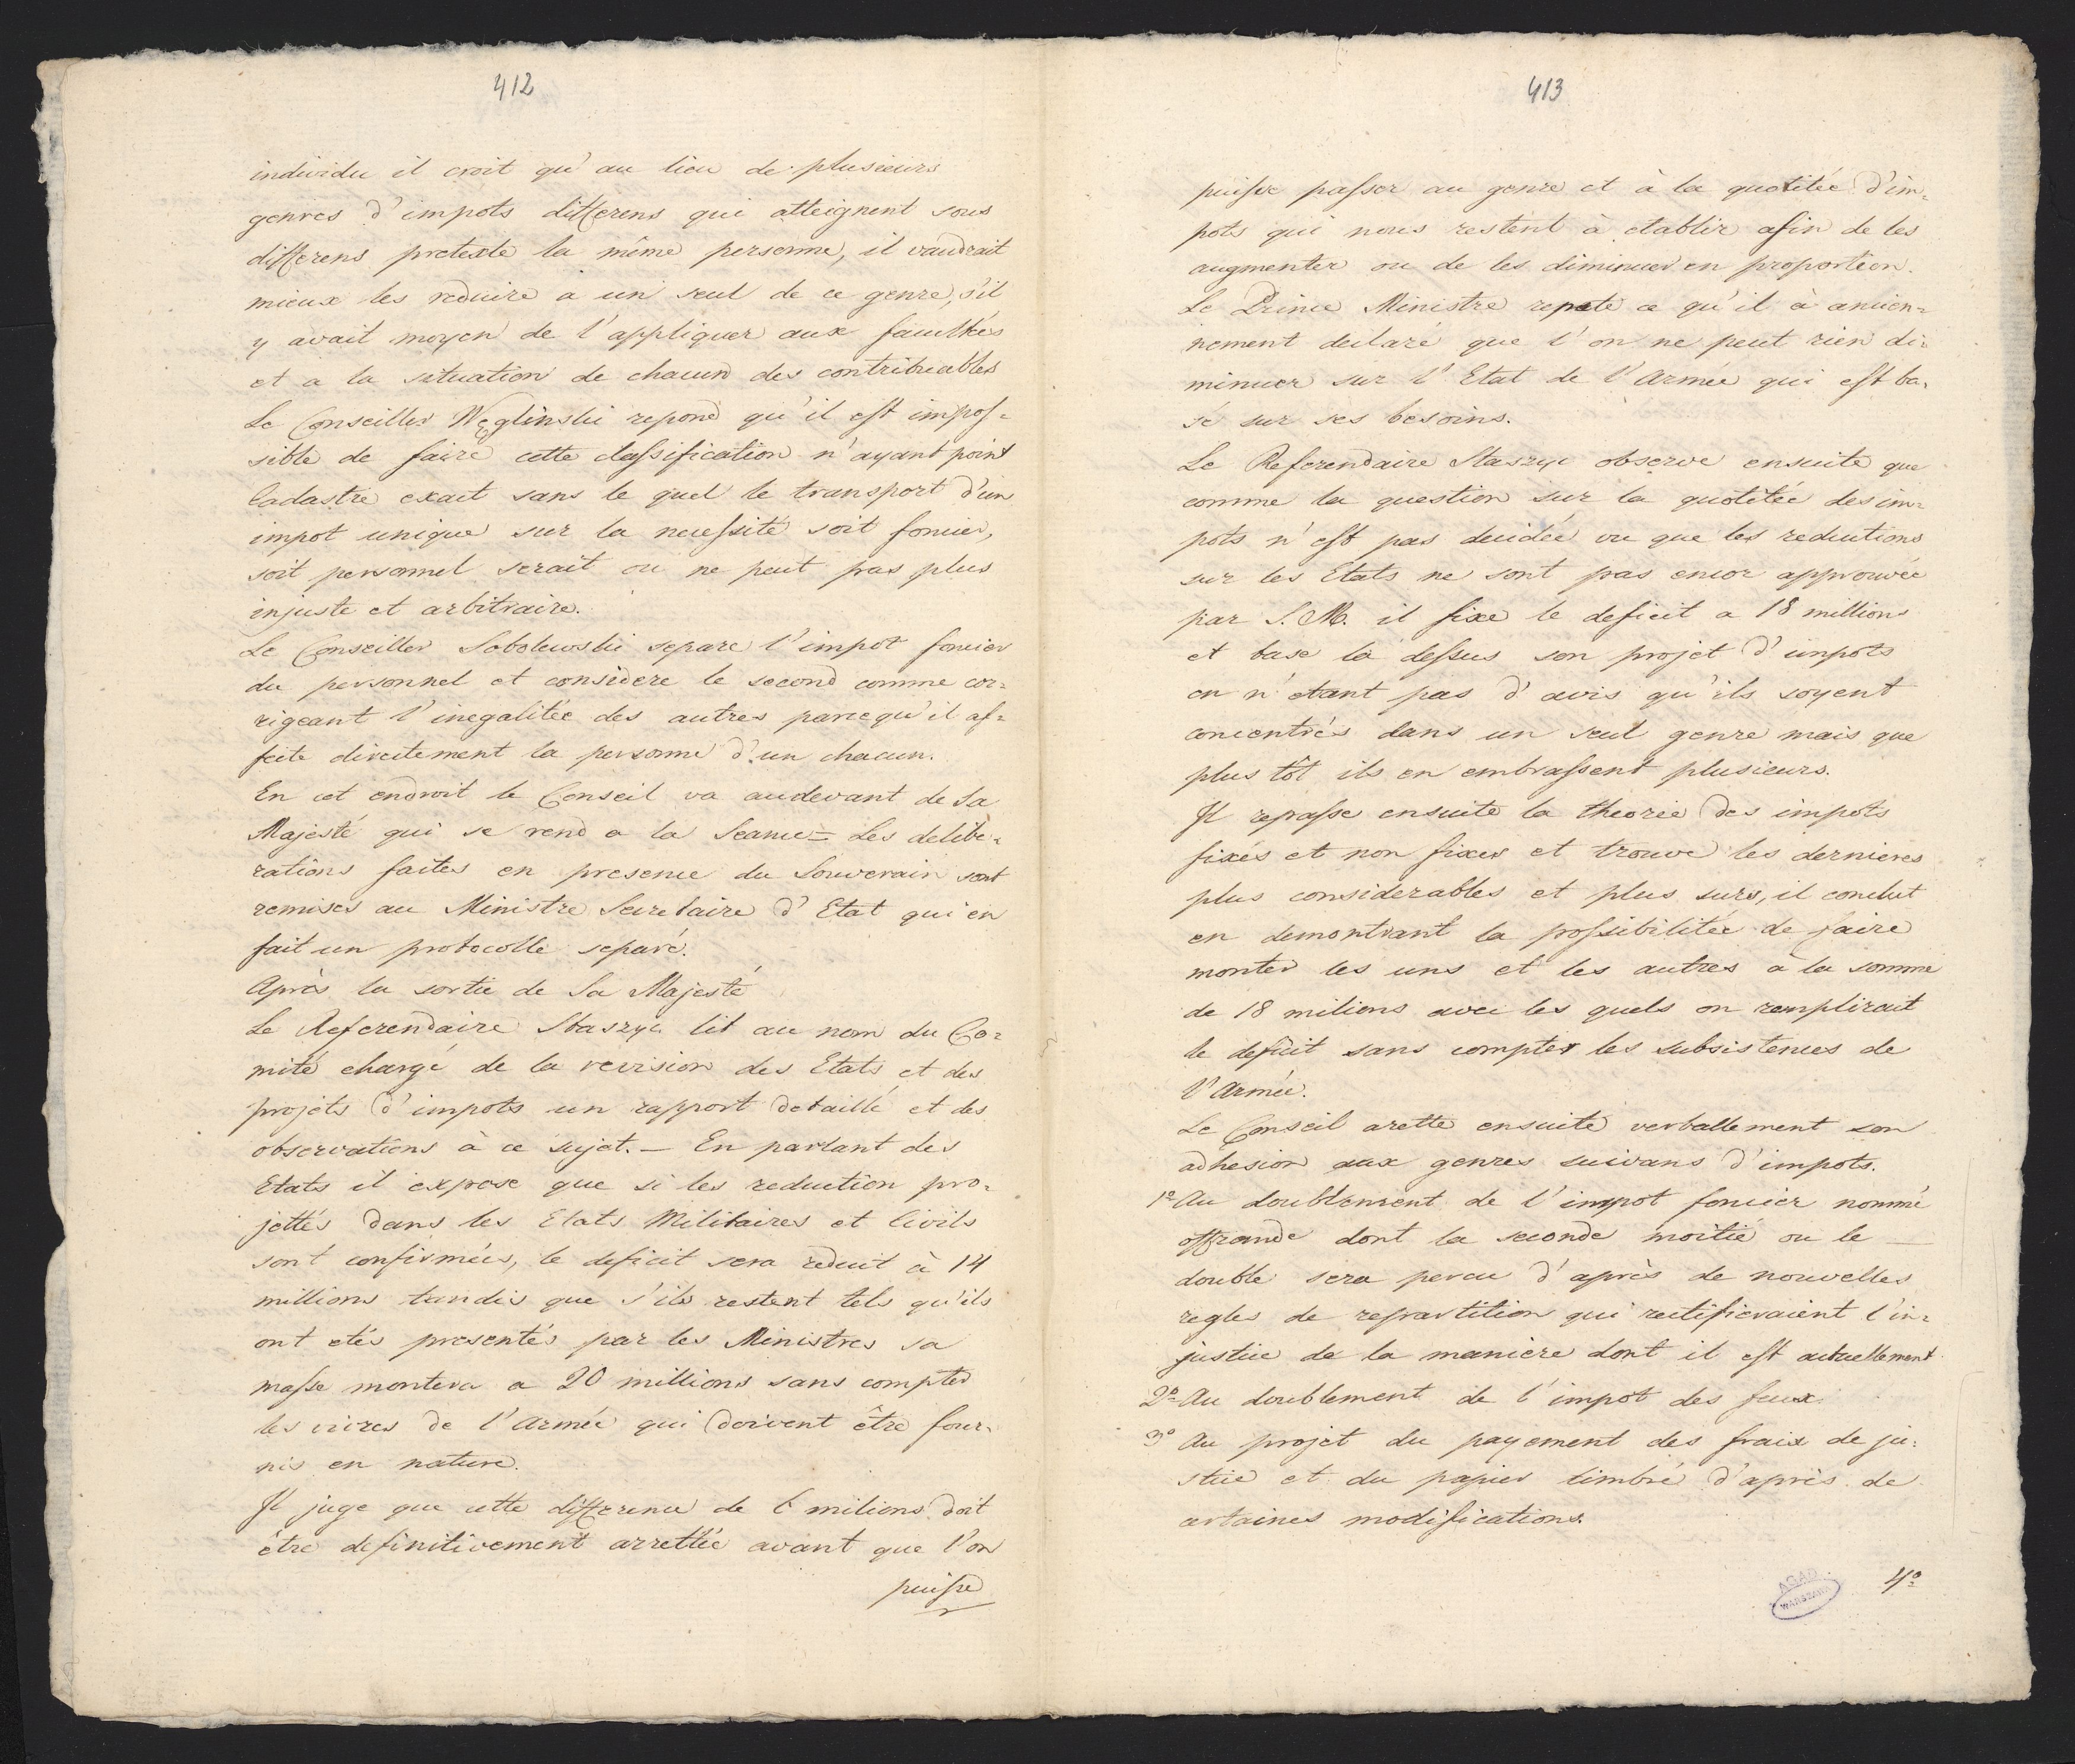 412
individu il croit qu'au lieu de plusieurs
genres d'impots differens qui atteignent sous
differens pretexte la même personne, il vaudrait
mieux les reduire a un seul de ce genre, s'il
y avait moyen de l'appliquer aux facultées
et a la situation de chacun des contribuables
Le Conseiller Węglinski repond qu'il est impos=
sible de faire cette classification n'ayant point
Cadastre exact sans le quel le transport d'un
impot unique sur la necessité soit foncier,
soit personnel serait on ne peut pas plus
injuste et arbitraire.
Le Conseiller Sobolewski separe l'impot foncier
du personnel et considere le second comme cor=
rigeant l'inegalitée des autres parcequ'il af=
fecte directement la personne d'un chacun.
En cet endroit le Conseil va audevant de Sa
Majesté qui se rend a la Seance = Les delibe=
rations faites en presence du Souverain sont
remises au Ministre Secretaire d'Etat qui en
fait un protocolle separé.
Après la sortie de Sa Majesté
Le Referendaire Staszyc lit au nom du Co=
mité chargé de la revision des Etats et des
projets d'impots un rapport detaillé et des
observations à ce sujet. — En parlant des
Etats il expose que si les reduction pro=
jettés dans les Etats Militaires et Civils
sont confirmées, le deficit sera reduit à 14
millions tandis que s'ils restent tels qu'ils
ont etés presentés par les Ministres sa
masse montera a 20 millions sans compter
les vivres de l'Armée qui doivent être four=
nis en nature.
Il juge que cette difference de 6 milions doit
être definitivement arrettée avant que l'on
puisse
413
puisse passer au genre et à la quotitée d'im=
pots qui nous restent à etablir afin de les
augmenter ou de les diminuer en proportion.
Le Prince Ministre repete ce qu'il à ancien=
nement declaré que l'on ne peut rien di=
minuer sur l'Etat de l'Armée qui est ba=
sé sur ses besoins.
Le Referendaire Staszyc observe ensuite que
comme la question sur la quotitée des im=
pots n'est pas decidée vu que les reductions
sur les Etats ne sont pas encor approuvée
par S. M. il fixe le deficit a 18 millions
et base là dessus son projet d'impots
en n'etant pas d'avis qu'ils soyent
concentrés dans un seul genre mais que
plus tôt ils en embrassent plusieurs.
Il repasse ensuite la theorie des impots
fixés et non fixes et trouve les dernieres
plus considerables et plus surs, il conclut
en demontrant la possibilitée de faire
monter les uns et les autres a la somme
de 18 milions avec les quels on remplirait
le deficit sans compter les subsistences de
l'Armée.
Le Conseil arette ensuite verballement son
adhesion aux genres suivans d'impots.
1º Au doublement de l'impot foncier nommé
offrande dont la seconde moitié ou le
double sera percu d'après de nouvelles
regles de repartition qui rectifieraient l'in=
justice de la maniere dont il est actuellement
2º Au doublement de l'impot des feux
3º Au projet du payement des fraix de ju=
stice et du papier timbré d'après de
certaines modifications.
AGAD
WARSZAWA
4º